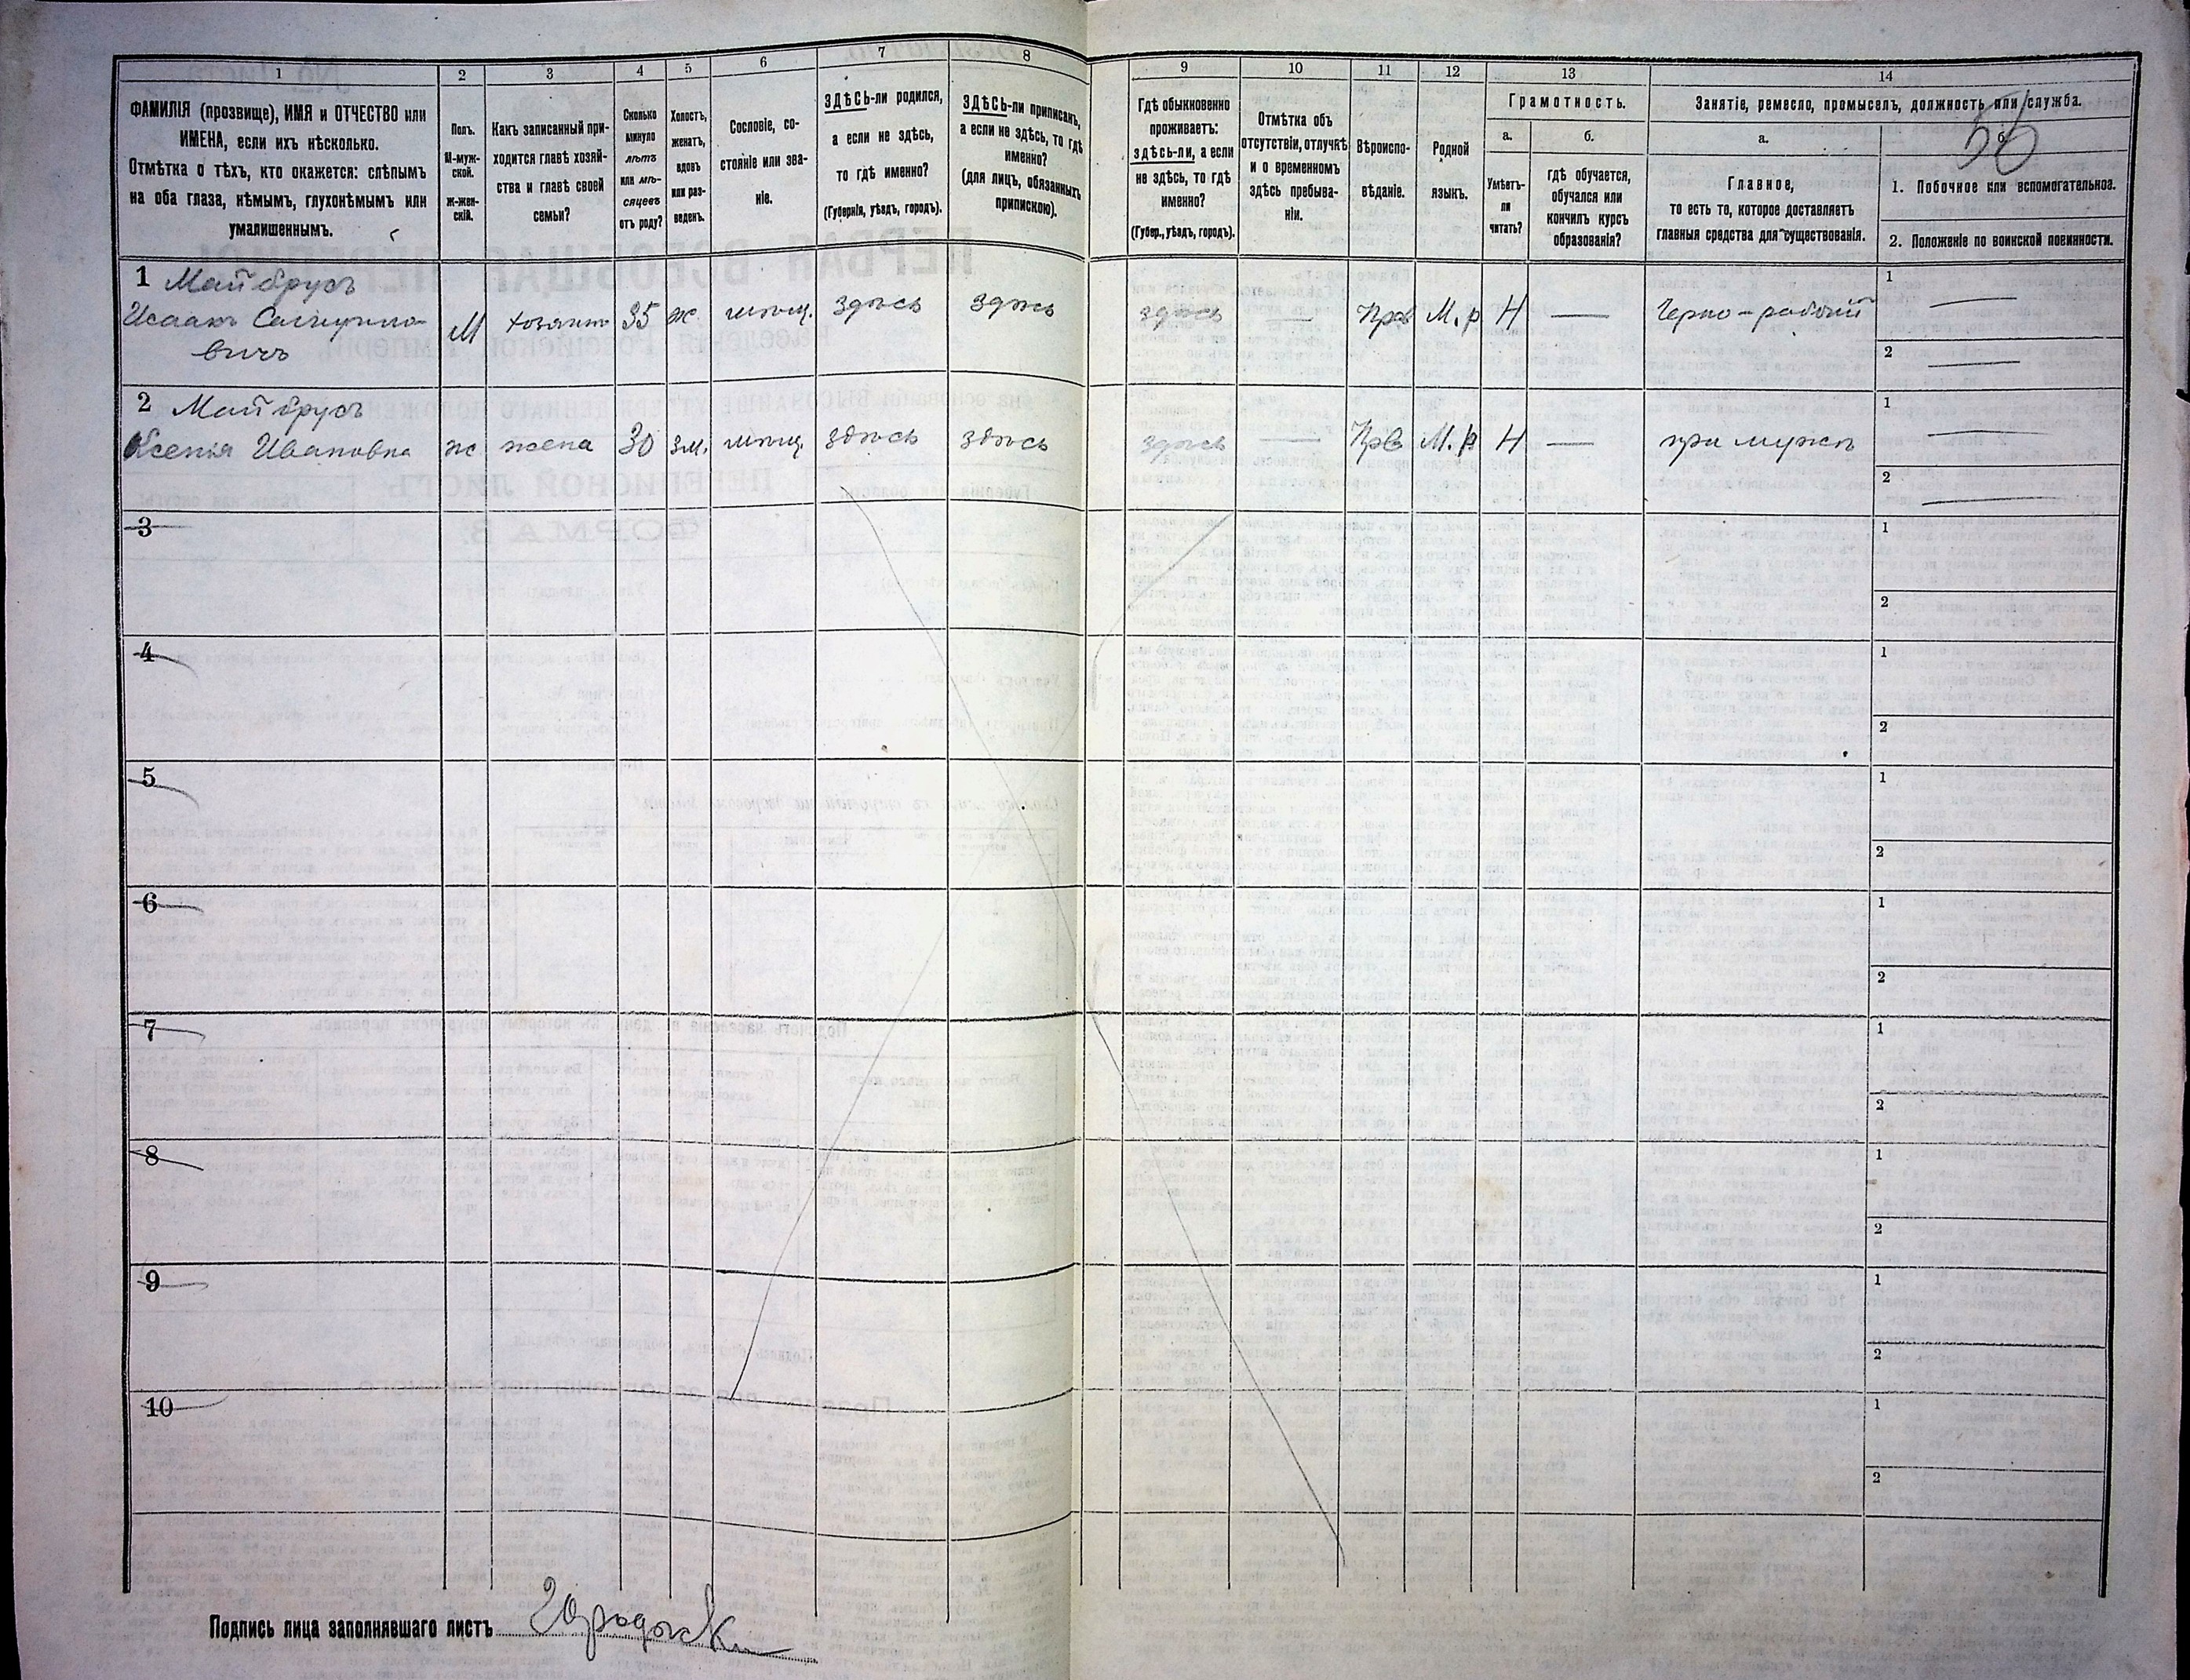 1 2 3 4 5 6 7 8 9 10 11 12 13 14
ФАМИЛІЯ (прозвище), ИМЯ и ОТЧЕСТВО или
ИМЕНА, если ихъ нѣсколько.
Отмѣтка о тѣхъ, кто окажется: слѣпымъ
на оба глаза, нѣмымъ, глухонѣмымъ или
умалишеннымъ.
Полъ.
М-муж-
ской.
ж-жен-
скій.
Какъ записанный при-
ходится главѣ хозяй-
ства и главѣ своей
семьи?
Сколько
минуло
лѣтъ
или мѣ-
сяцевъ
отъ роду?
Холостъ,
женатъ,
вдовъ
или раз-
веденъ.
Сословіе, со-
стояніе или зва-
ніе.
ЗДѢСЬ-ли родился,
а если не здѣсь,
то гдѣ именно?
(Губернія, уѣздъ, городъ).
ЗДѢСЬ-ли приписанъ,
а если не здѣсь, то гдѣ
именно?
(для лицъ, обязанныхъ
припискою).
Гдѣ обыкновенно
проживаетъ:
здѣсь-ли, а если
не здѣсь, то гдѣ
именно?
(Губер., уѣздъ, городъ).
Отмѣтка объ
отсутствіи, отлучкѣ
и о временномъ
здѣсь пребыва-
ніи.
Вѣроиспо-
вѣданіе.
Родной
языкъ.
Грамотность.
а.
Умѣетъ-
ли
читать?
б.
гдѣ обучается,
обучался или
кончилъ курсъ
образованія?
Занятіе, ремесло, промыселъ, должность или служба.
56
а.
Главное,
то есть то, которое доставляетъ
главныя средства для существованія.
б.
1. Побочное или вспомогательное.
2. Положеніе по воинской повинности.
1 Майбрусъ
Исаакъ
вичъ
М хозяинъ 35 ж мѣщ. здѣсь здѣсь здѣсь — Прав М. р Н — Черно-рабочій 1 —
2 —
2 Майбрусъ
Ксенія Ивановна ж жена 30 зм. мѣщ. здѣсь здѣсь здѣсь — Прв М. р Н — при мужѣ 1 —
2 —
3 1
2
4 1
2
5 1
2
6 1
2
7 1
2
8 1
2
9 1
2
10 1
2
Подпись лица заполнявшаго листъ